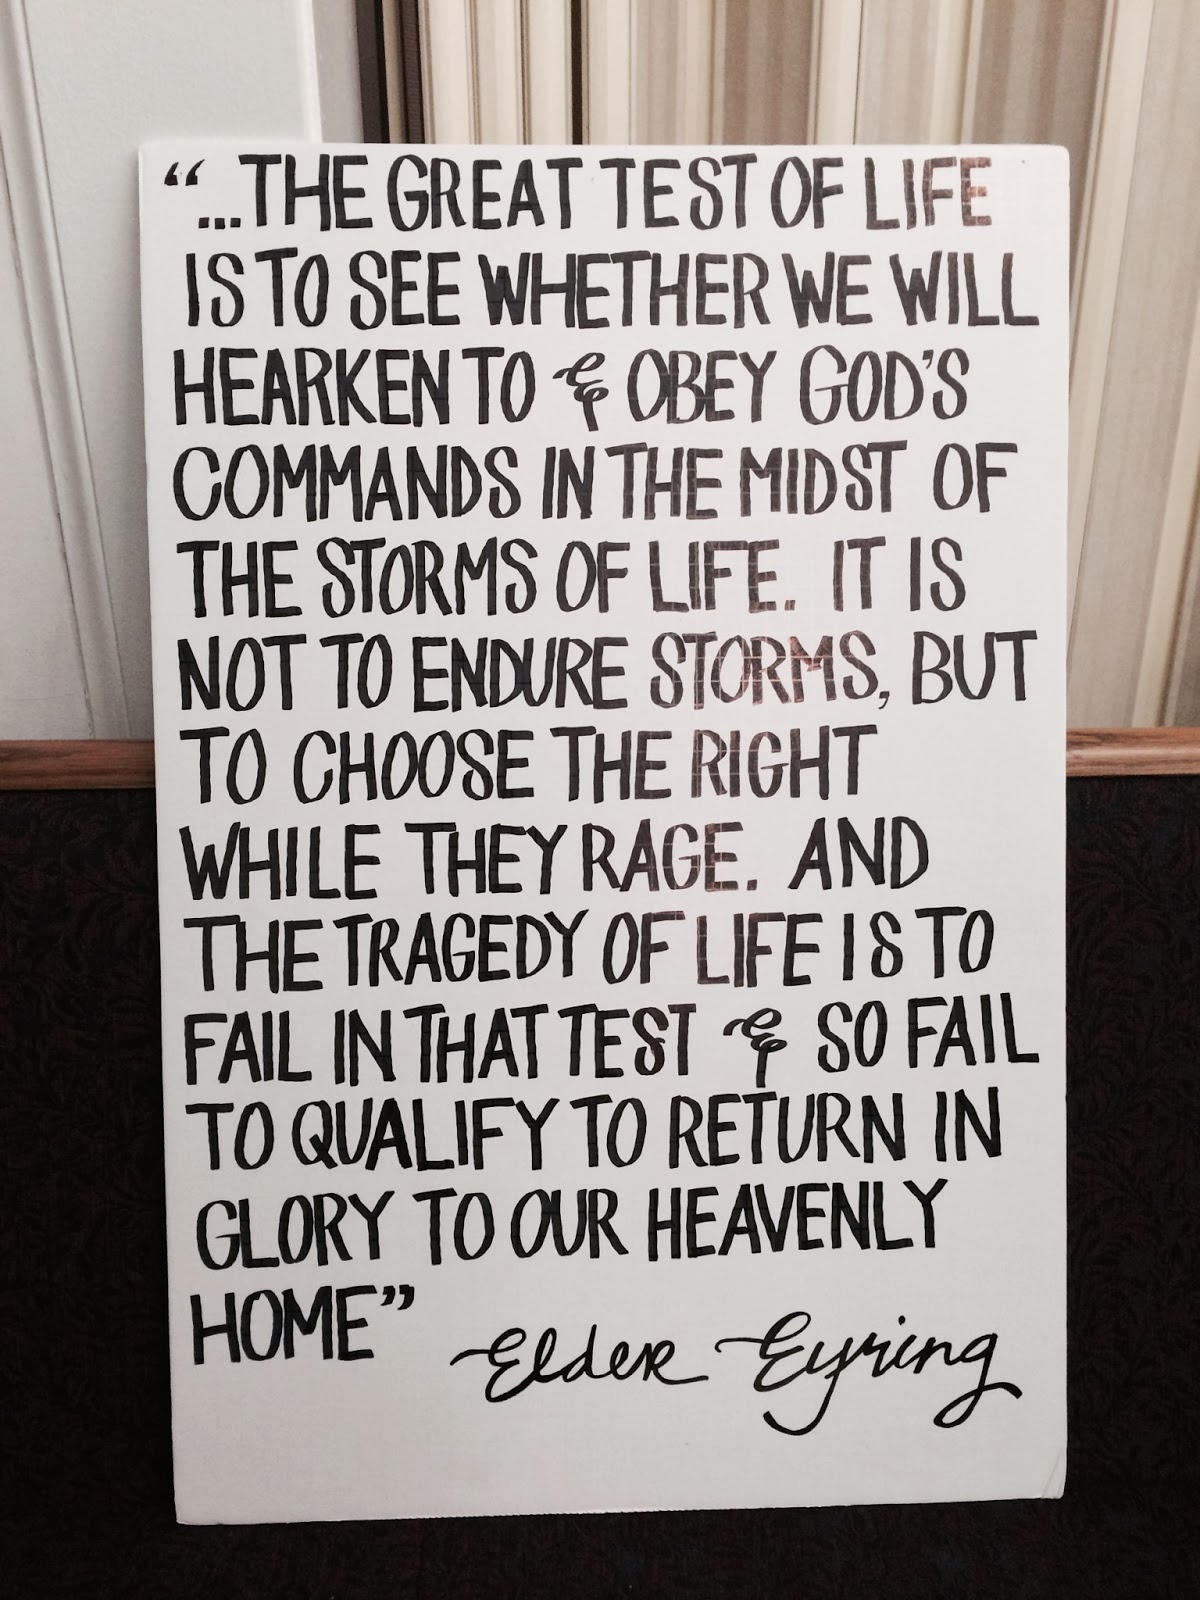 “...THE GREAT TEST OF LIFE
IS TO SEE WHETHER WE WILL
HEARKEN TO & OBEY GOD'S
COMMANDS IN THE MIDST OF
THE STORMS OF LIFE. IT IS
NOT TO ENDURE STORMS, BUT
TO CHOOSE THE RIGHT
WHILE THEY RAGE. AND
THE TRAGEDY OF LIFE IS TO
FAIL IN THAT TEST & SO FAIL
TO QUALIFY TO RETURN IN
GLORY TO OUR HEAVENLY
HOME”
-Elder Eyring